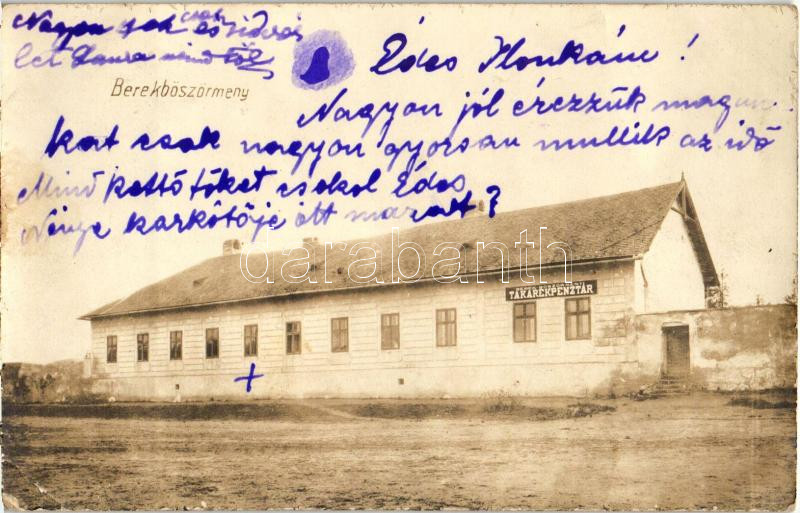 Nagyon sok csók és üdvöz
let Laura
Berekböszörmény
Édes Ilonkám!
Nagyon jól érezzük magun
kat csak nagyon gyorsan mullik az idő
Mind kettőtöket csokol Édes
Nénje karkötője ott maradt?
darabanth
TAKARÉKPÉNZTÁR